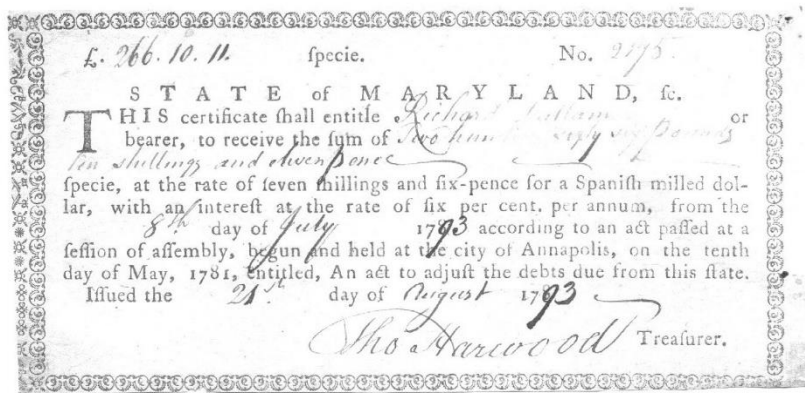 £. 266. 10. 11. ſpecie. No.
STATE of MARYLAND, ſc.
THIS certificate ſhall entitle Richard or
bearer, to receive the ſum of Two hundred sixty six pounds
ten shillings and eleven pence
ſpecie, at the rate of ſeven ſhillings and ſix-pence for a Spaniſh milled dol-
lar, with an intereſt at the rate of ſix per cent. per annum, from the
8th day of July 1793 according to an act paſſed at a
ſeſſion of aſſembly, begun and held at the city of Annapolis, on the tenth
day of May, 1781, entitled, An act to adjuſt the debts due from this ſtate.
Iſſued the 21st day of August 1793
Tho Harwood Treaſurer.